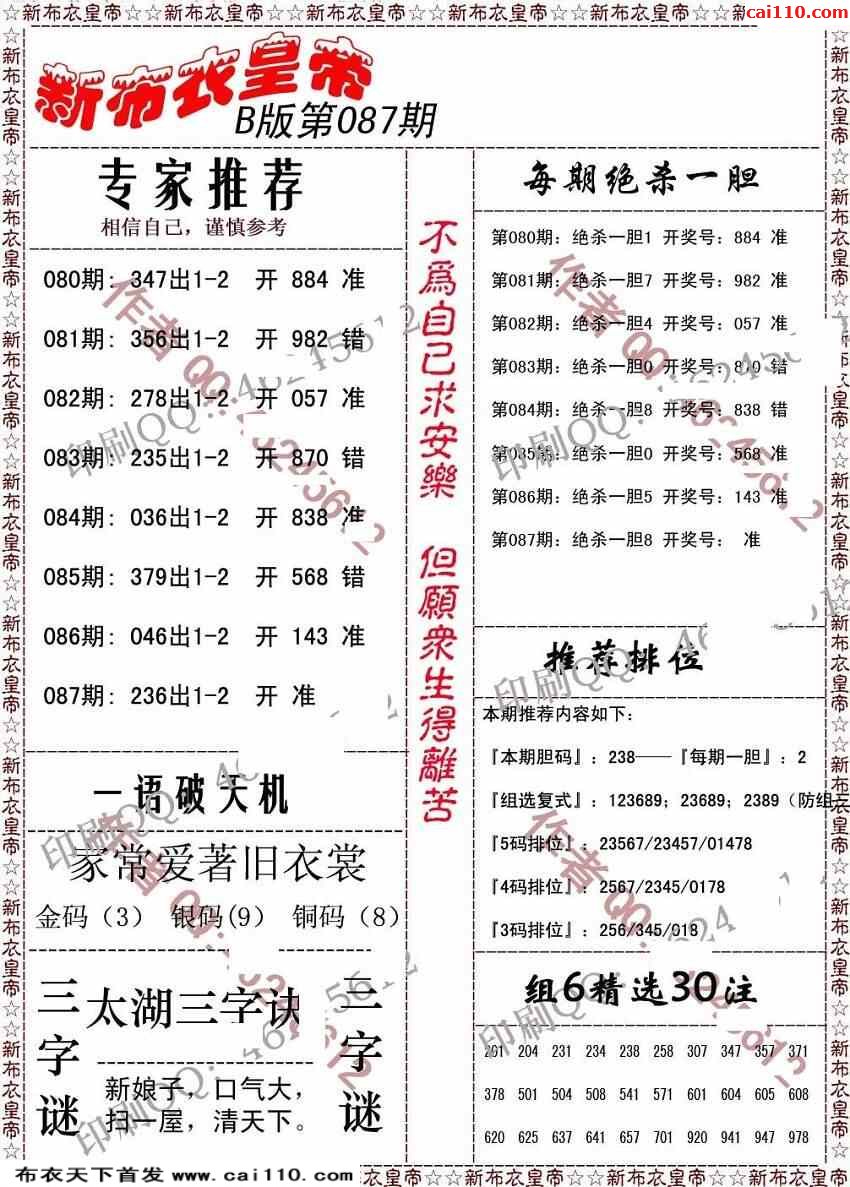 ☆☆新布衣皇帝☆☆新布衣皇帝☆☆新布衣皇帝☆☆新布衣皇帝☆☆新布衣皇帝☆☆新
cai110.com
新布衣皇帝
B版第087期
专家推荐
相信自己，谨慎参考
080期：347出1-2 开 884 准
081期：356出1-2 开 982 错
082期：278出1-2 开 057 准
083期：235出1-2 开 870 错
084期：036出1-2 开 838 准
085期：379出1-2 开 568 错
086期：046出1-2 开 143 准
087期：236出1-2 开 准
一语破天机
家常爱著旧衣裳
金码（3） 银码(9） 铜码（8）
三字谜
太湖三字诀
新娘子，口气大，
扫一屋，清天下。
三字谜
不為自己求安樂 但願衆生得離苦
每期绝杀一胆
第080期：绝杀一胆1 开奖号：884 准
第081期：绝杀一胆7 开奖号：982 准
第082期：绝杀一胆4 开奖号：057 准
第083期：绝杀一胆0 开奖号：870 错
第084期：绝杀一胆8 开奖号：838 错
第085期：绝杀一胆0 开奖号：568 准
第086期：绝杀一胆5 开奖号：143 准
第087期：绝杀一胆8 开奖号： 准
推荐排位
本期推荐内容如下：
『本期胆码』：238——『每期一胆』：2
『组选复式』：123689；23689；2389（防组三
『5码排位』：23567/23457/01478
『4码排位』：2567/2345/0178
『3码排位』：256/345/018
组6精选30注
201 204 231 234 238 258 307 347 357 371
378 501 504 508 541 571 601 604 605 608
620 625 637 641 657 701 920 941 947 978
布衣天下首发 www.cai110.com
衣皇帝☆☆新布衣皇帝☆☆新布衣皇帝☆☆新布衣皇帝☆☆